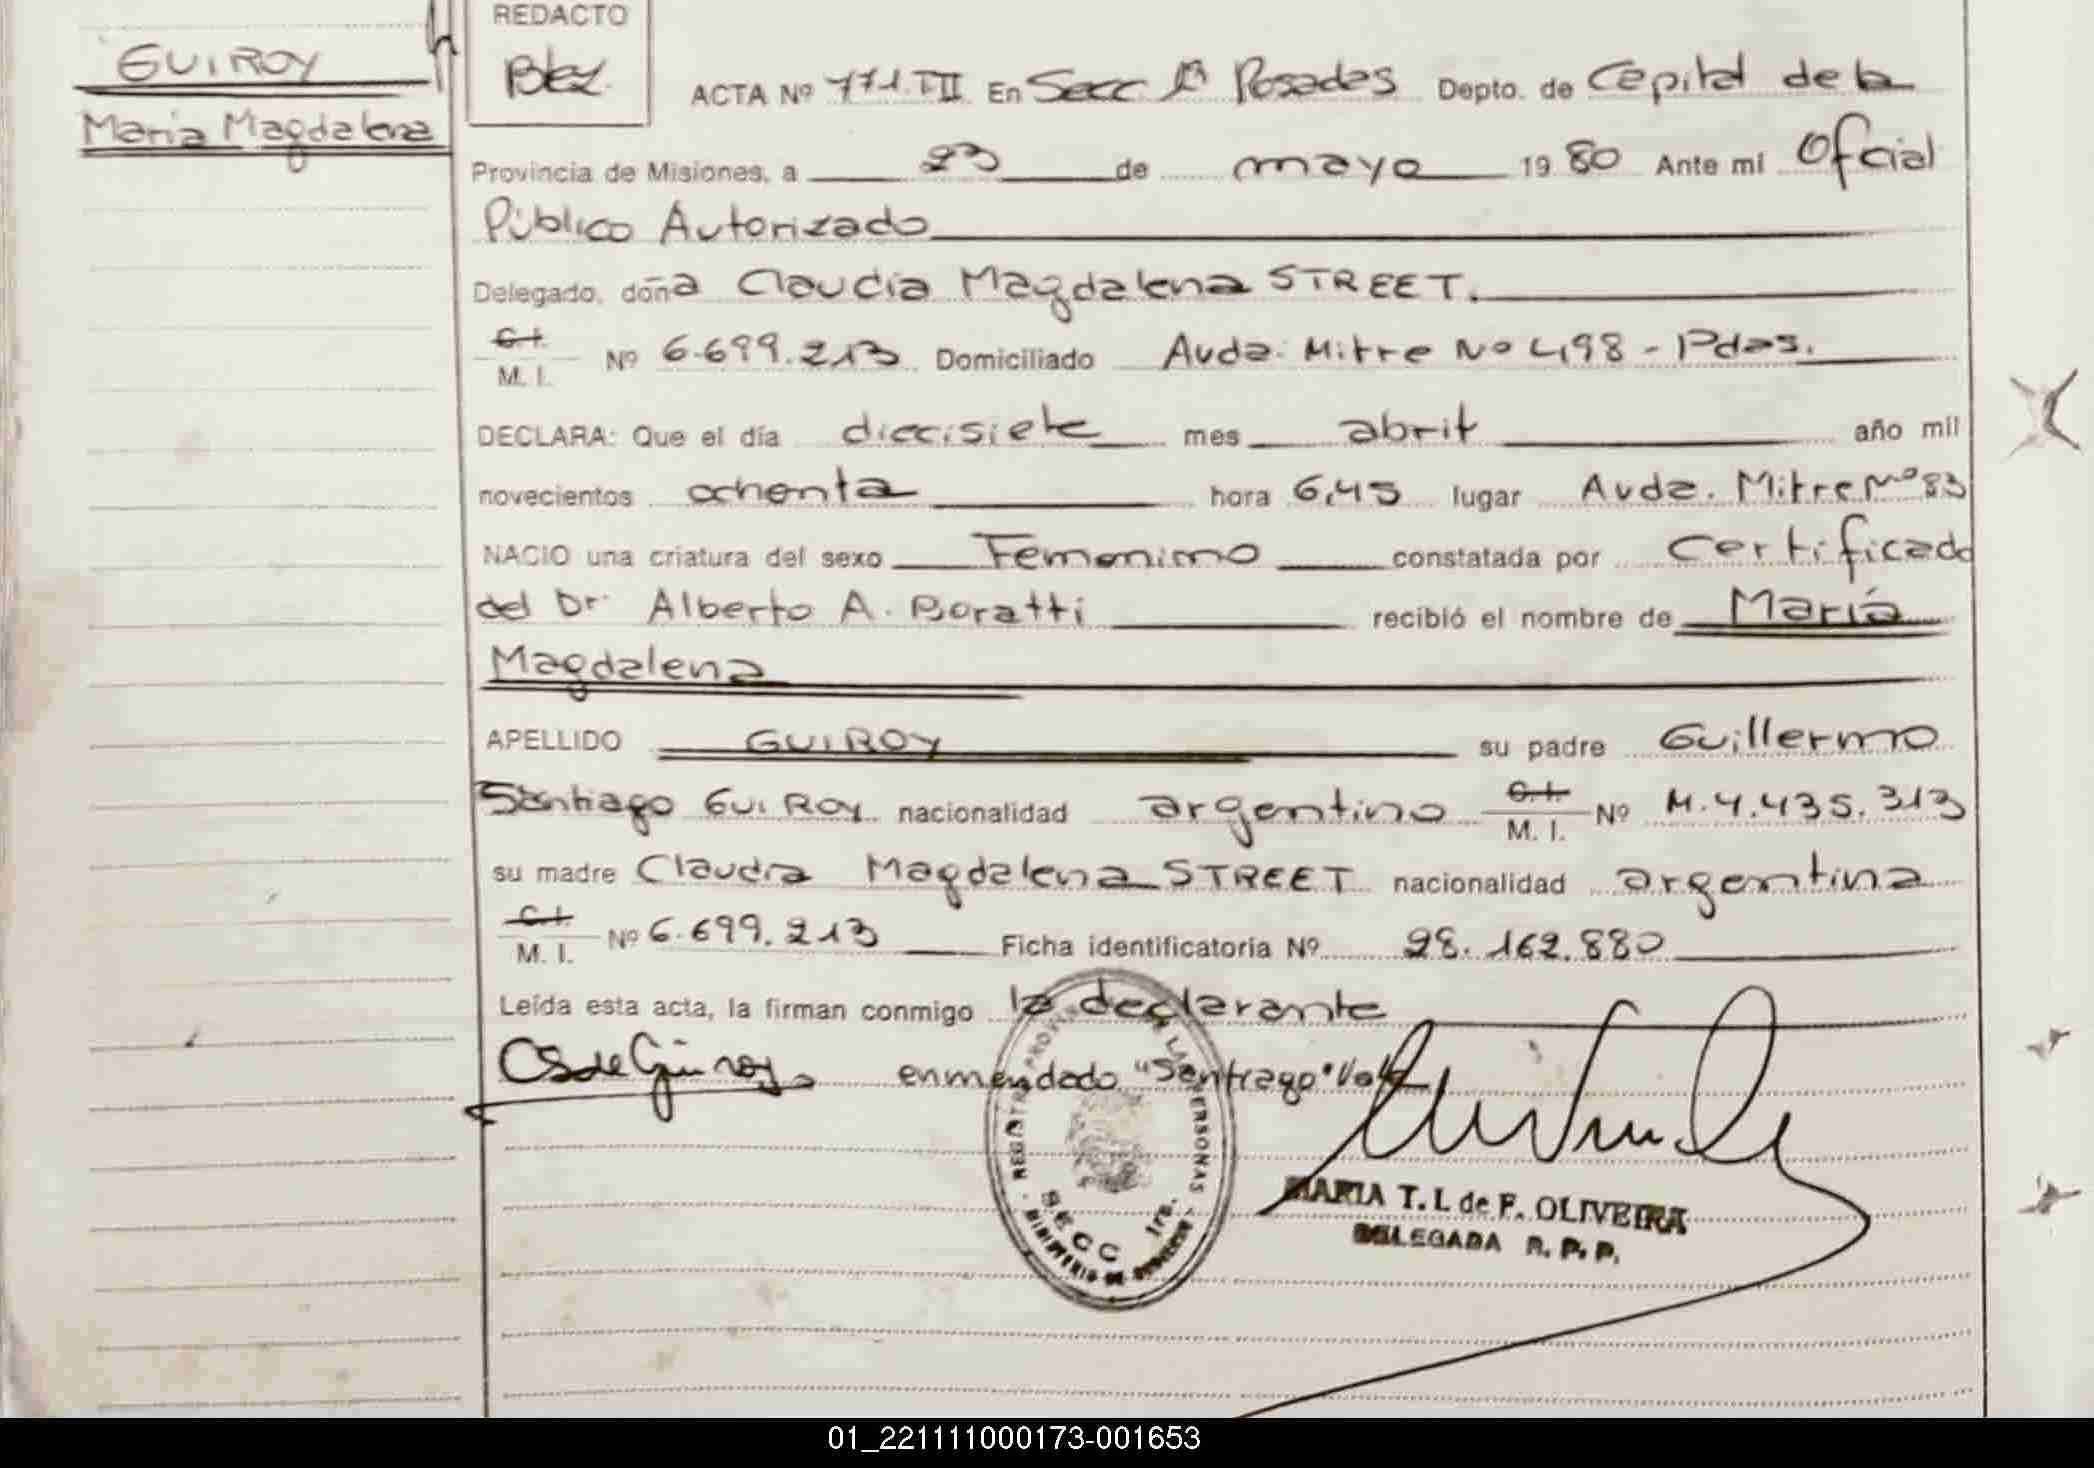 GUIROY
María Magdalena
REDACTO
ACTA Nº 771.TII En Secc 1ª Posadas Depto. de Capital de la
Provincia de Misiones, a 23 de mayo 1980 Ante mí Oficial
Público Autorizado
Delegado, doña Claudia Magdalena STREET.
C.I.
M. I. Nº 6.699.213 Domiciliado Avda. Mitre Nº 498 - Pdas.
DECLARA: Que el día diecisiete mes abril año mil
novecientos ochenta hora 6,45 lugar Avda. Mitre Nº 83
NACIO una criatura del sexo Femenino constatada por Certificado
del Dr Alberto A. Boratti recibió el nombre de María
Magdalena
APELLIDO GUIROY su padre Guillermo
Santiago GUIROY nacionalidad argentino C.I.
M. I. Nº M.4.435.313
su madre Claudia Magdalena STREET nacionalidad argentina
C.I.
M. I. Nº 6.699.213 Ficha identificatoria Nº 28.162.880
Leída esta acta, la firman conmigo la declarante
CSdeGuiroy enmendado "Santiago" Vale
REGISTRO PROVINCIAL DE LAS PERSONAS
SECC 1ra.
MINISTERIO DE GOBIERNO
MARIA T. I. de F. OLIVEIRA
DELEGADA R. P. P.
01_221111000173-001653